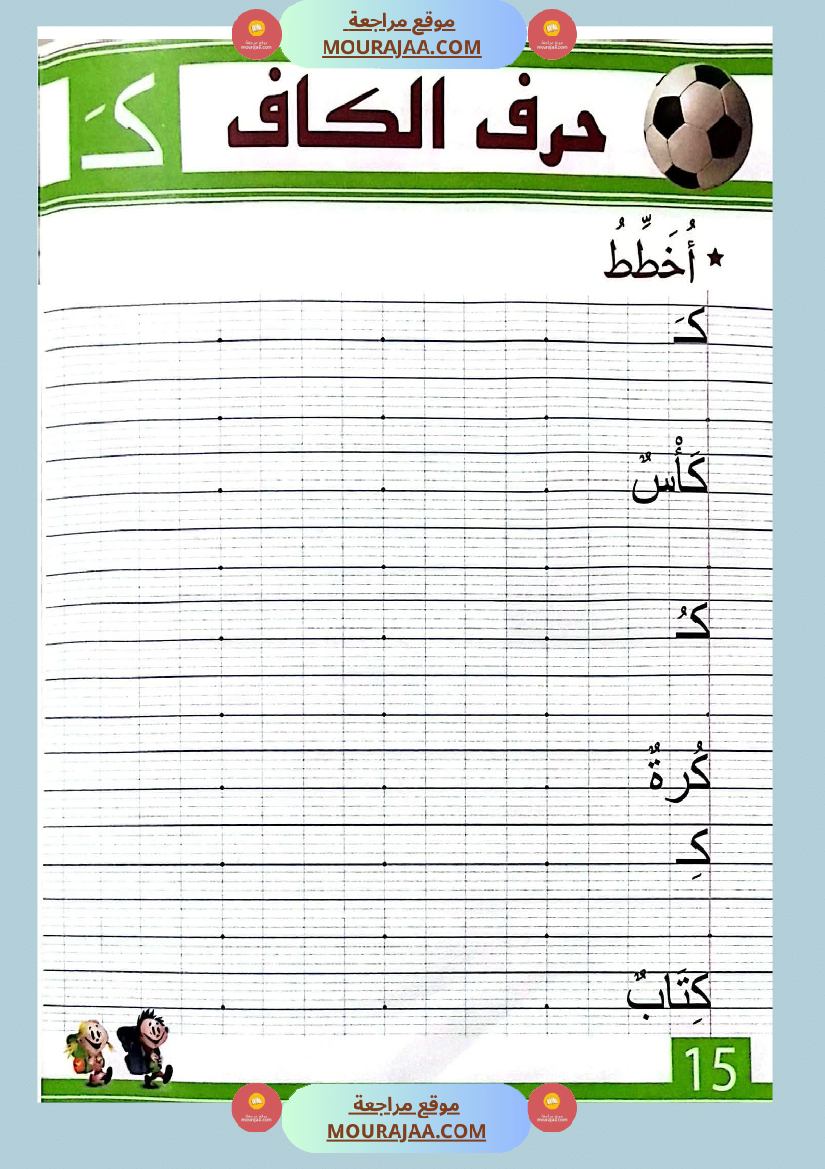 موقع مراجعة
MOURAJAA.COM
حرف الكاف
كَ
★ أُخَطِّطُ
كَ
كَأْسٌ
كُ
كُرةٌ
كِ
كِتَابٌ
15
موقع مراجعة
MOURAJAA.COM